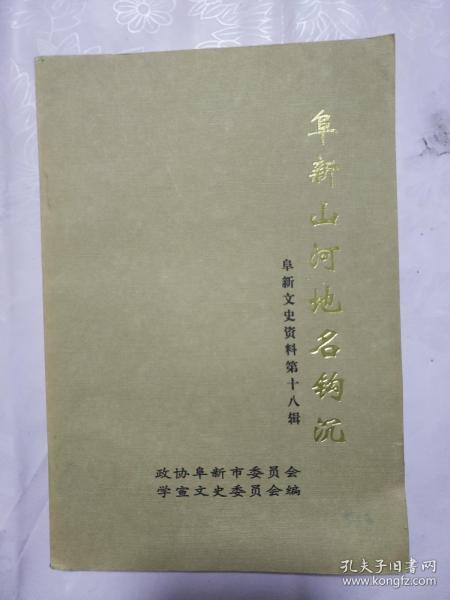 阜新山河地名钩沉
阜新文史资料第十八辑
政协阜新市委员会
学宣文史委员会编
孔夫子旧书网
www.kongfz.com